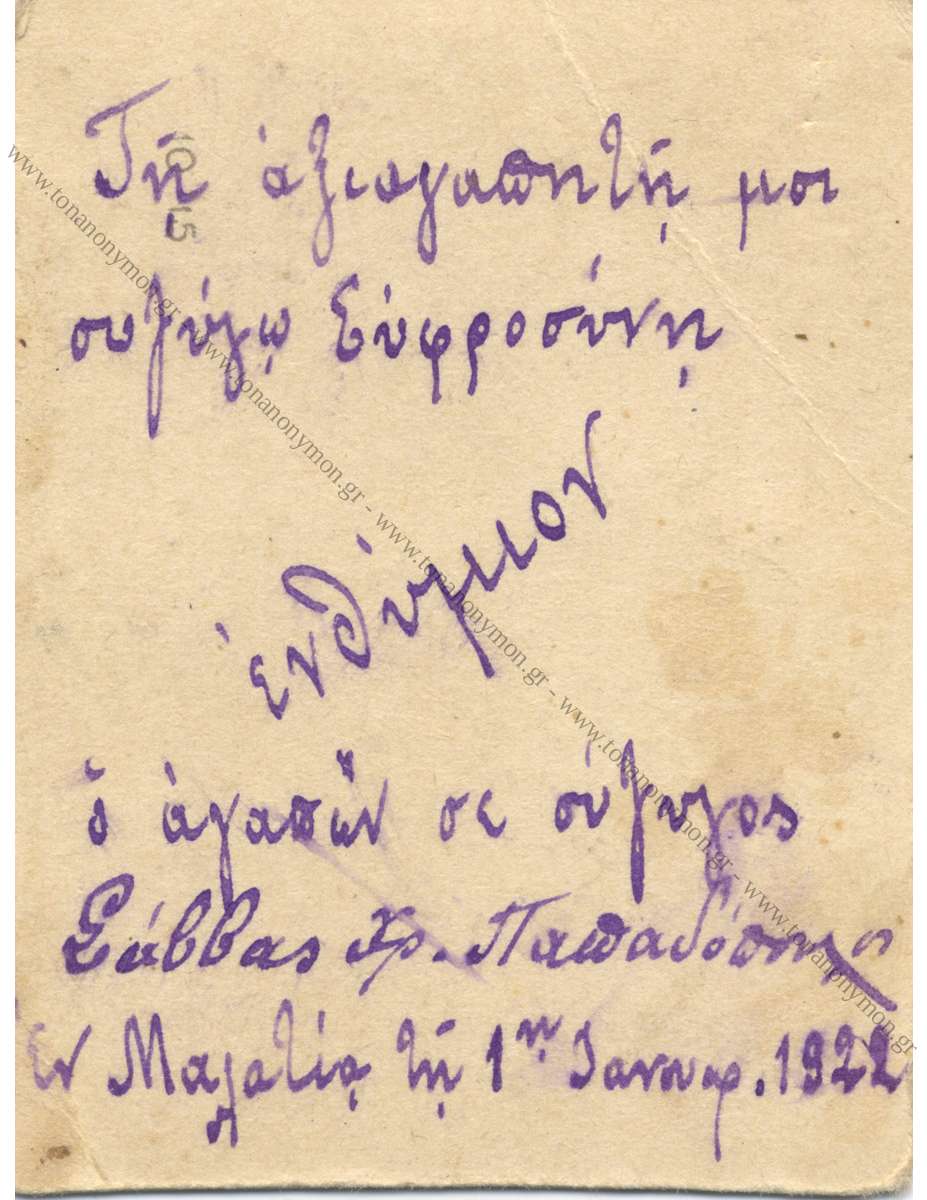 Τῇ ἀξιαγαπητῇ μοι
συζύγῳ Εὐφροσύνῃ
ἐνθύμιον
ὁ ἀγαπῶν σε σύζυγος
Σάββας Χρ. Παπαδόπουλος
Ἐν Μαλατίᾳ τῇ 1ῃ Ἰανουαρ. 1922
www.tonanonymon.gr - www.tonanonymon.gr - www.tonanonymon.gr - www.tonanonymon.gr - www.tonanonymon.gr